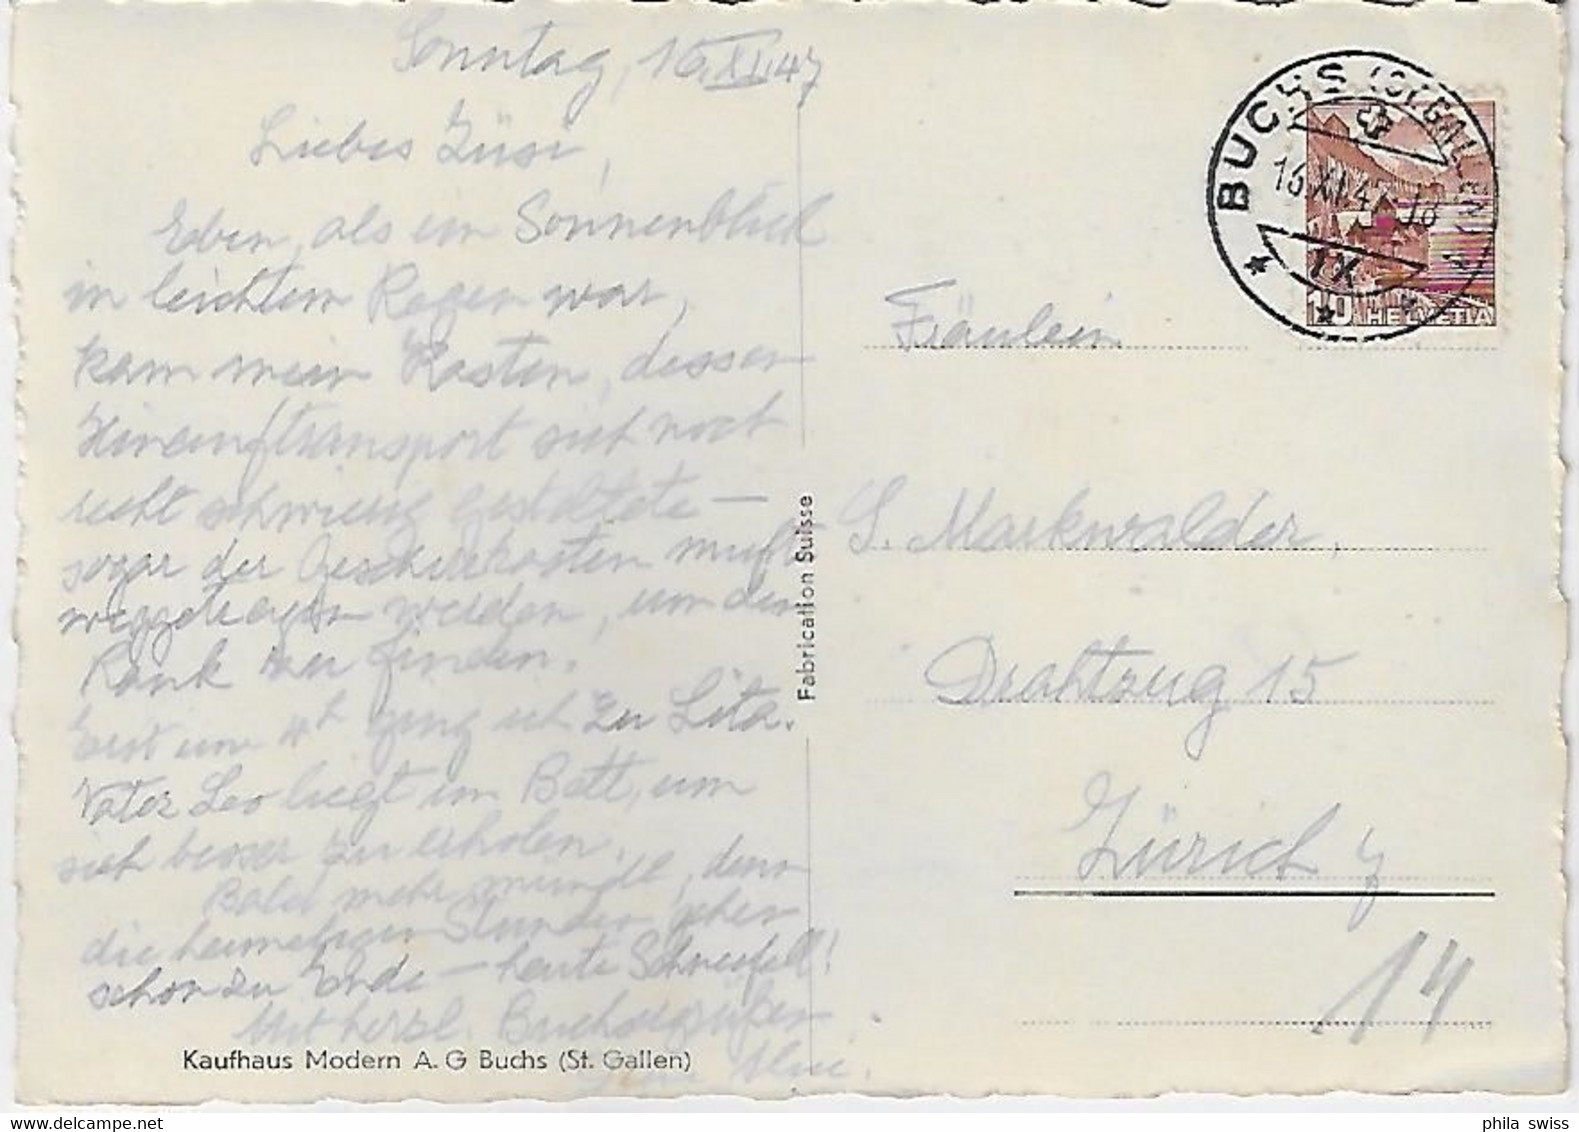 Sonntag, 16.XI.47
Liebes Züsi,
Eben, als ein Sonnenblick
in leichtem Regen war,
kam mein Kasten, dessen
Hinauftransport sich noch
recht schwierig gestaltete –
sogar der Geschirrkasten mußte
weggetragen werden, um den
Rank zu finden.
Erst um 4h ging ich zu Lita.
Vater Leo liegt im Bett, um
sich besser zu erholen.
Bald mehr mündl., denn
die heimeligen Stunden gehen
schon zu Ende – heute Schneefall!
Mit herzl. Buchsergrüßen
Kaufhaus Modern A. G Buchs (St. Gallen)
Fabrication Suisse
BUCHS (ST. GALLEN)
16.XI.47.18
IX
10 HELVETIA
Fräulein
S. Markwalder,
Drahtzug 15
Zürich 7
14
phila swiss